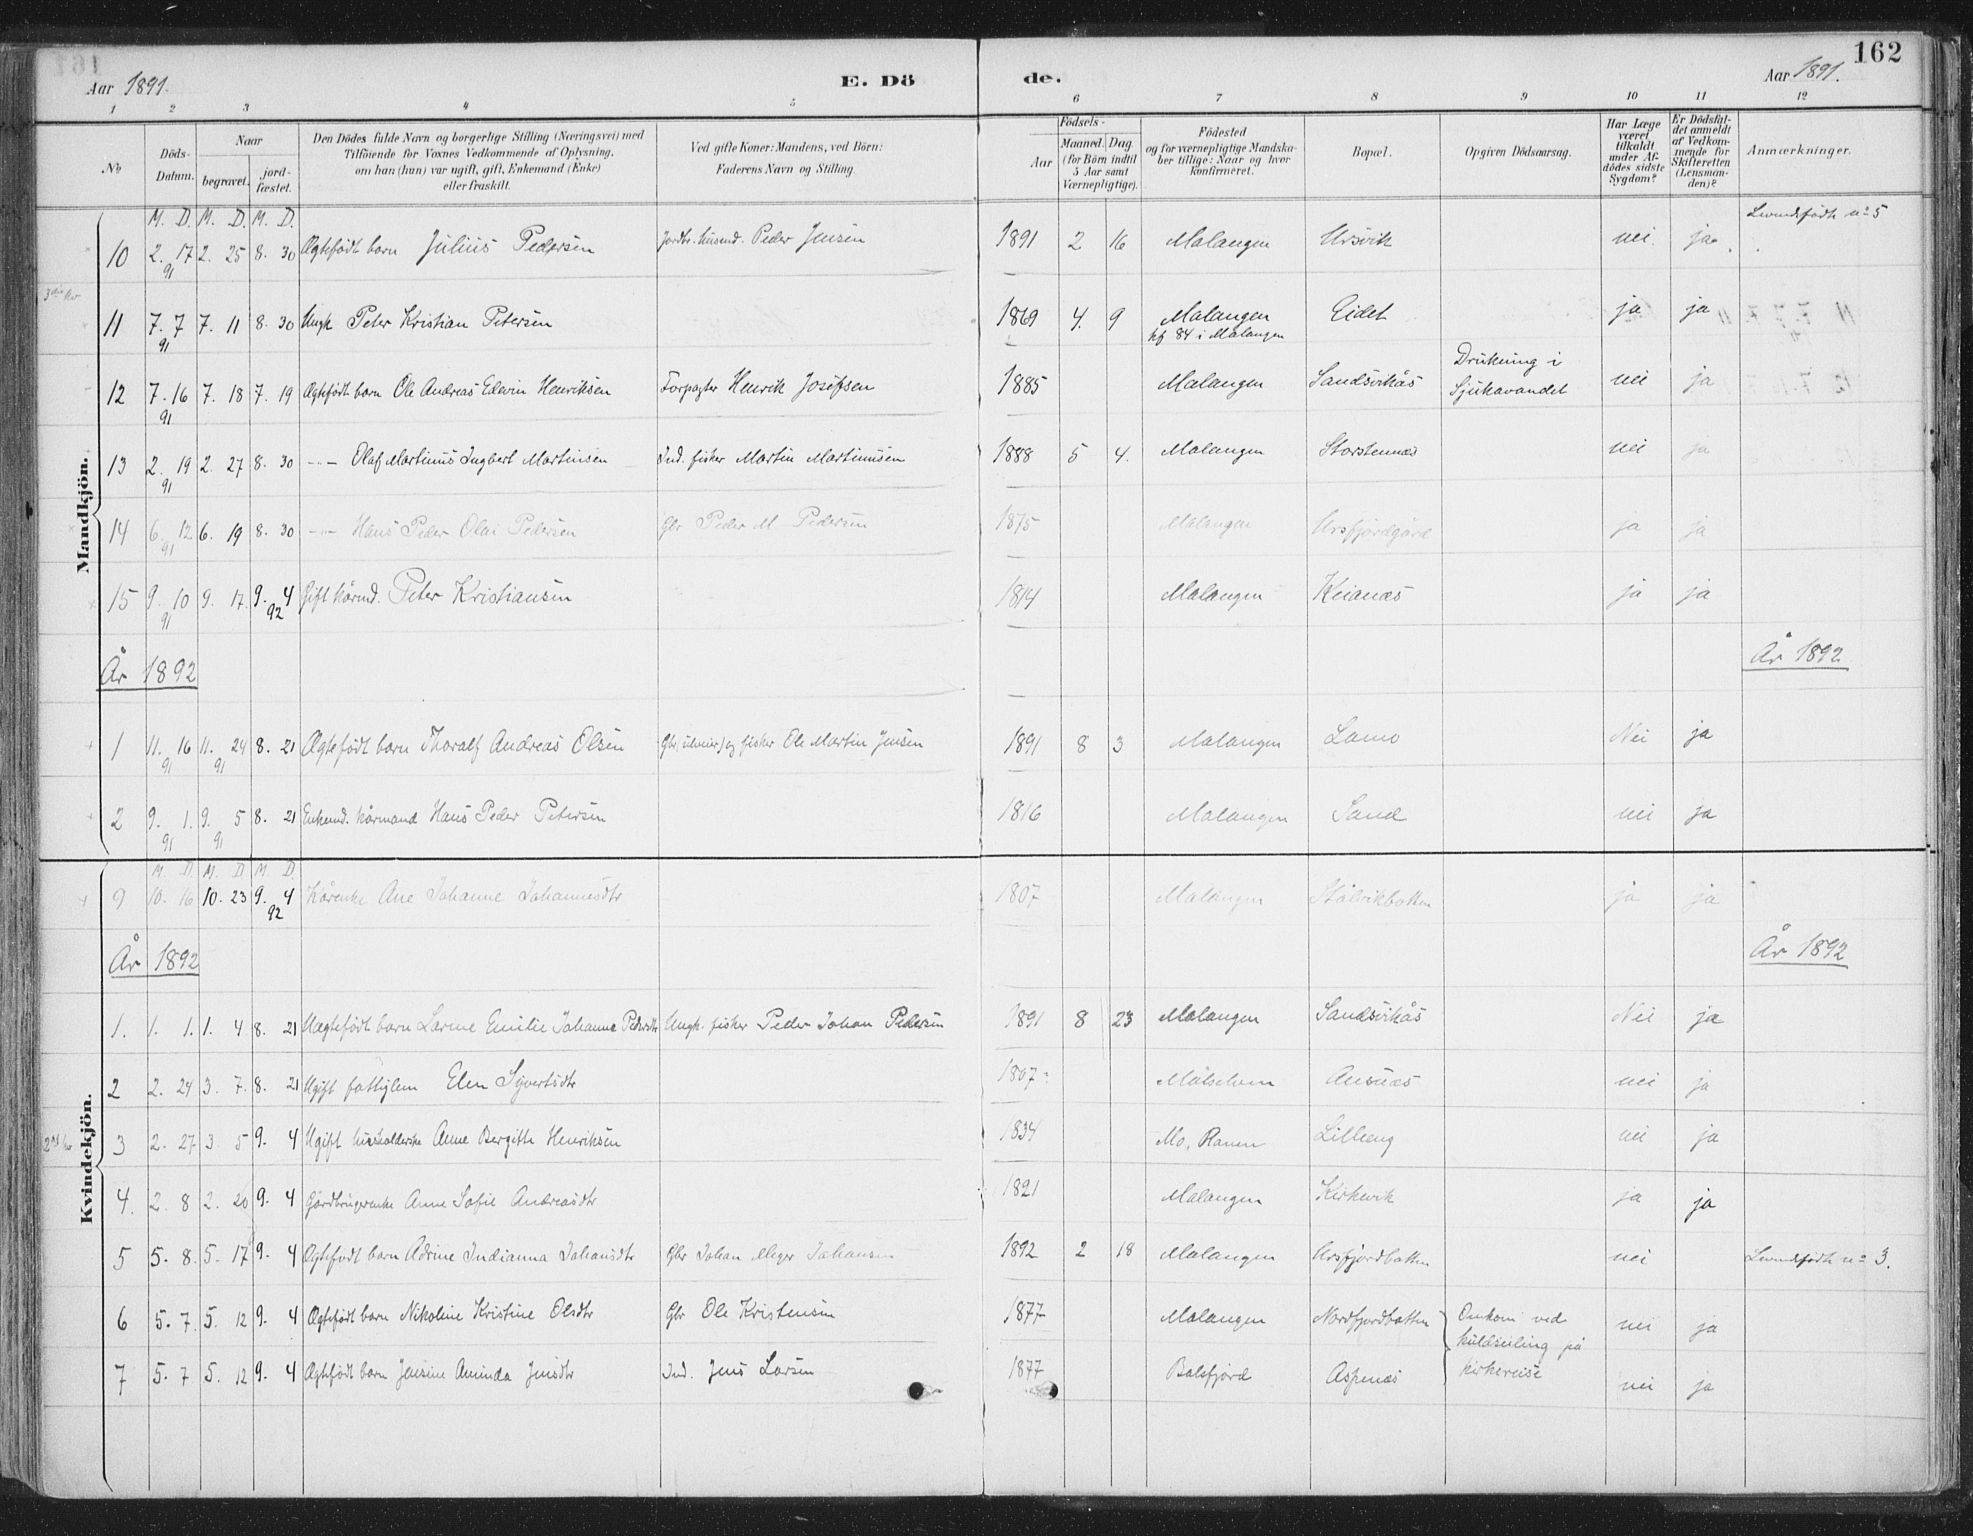 162
Aar 1891. E. Dö de. Aar 1891.
1 2 3 4 5 6 7 8 9 10 11 12
No
Döds-Datum.
Naar
begravet. jord-fæstet.
Den Dödes fulde Navn og borgerlige Stilling (Næringsvei) med
Tilföiende for Voxnes Vedkommende af Oplysning,
om han (hun) var ugift, gift, Enkemand (Enke)
eller fraskilt.
Ved gifte Koner: Mandens, ved Börn:
Faderens Navn og Stilling.
Födsels-
Aar Maaned. Dag.
(for Börn indtil
5 Aar samt
Værnepligtige).
Födested
og for værnepligtige Mandska-
ber tillige: Naar og hvor
konfirmeret.
Bopæl.
Opgiven Dödsaarsag.
Har Læge
været
tilkaldt
under Af-
dödes sidste
Sygdom?
Er Dödsfal-
det anmeldt
af Vedkom-
mende for
Skifteretten
(Lensman-
den)?
Anmærkninger.
Mandkjön.
M. D. M. D. M. D.
10 2. 17 91 2. 25 8. 30 Ægtefödt barn Julius Pedersen Jordbr. husmd. Peder Jensen 1891 2 16 Malangen Ursvik nei ja Levendefödte no 5
11 7. 7 91 7. 11 8. 30 Ungk Peter Kristian Petersen 1869 4. 9 Malangen kf 84 i Malangen Eidet ja ja
12 7. 16 91 7. 18 7. 19 Ægtefödt barn Ole Andreas Edevin Henriksen Forpagter Henrik Josefsen 1885 Malangen Sandsvikås Drukning i Sjukavandet nei ja
13 2. 19 91 2. 27 8. 30 -"- Olaf Martinus Ingbert Martinsen Ind. fisker Martin Martinusen 1888 5 4. Malangen Storstennæs nei ja
14 6. 12 91 6. 19 8. 30 -"- Hans Peder Olai Pedersen Gbr Peder M Pedersen 1875 Malangen Ursfjordgård ja ja
15 9. 10 91 9. 17. 9. 4 92 Gift kårmd. Peter Kristiansen 1814 Malangen Keianæs ja ja
År 1892 År 1892
1 11. 16 91 11. 24 91 8. 21 Ægtefödt barn Thoralf Andreas Olsen og fisker Ole Martin Jensen 1891 8 3 Malangen Lamo Nei ja
2 9. 1. 91 9. 5 91 8. 21 Enkemd. kårmand Hans Peder Petersen 1816 Malangen Sand nei ja
Kvindekjön.
M. D. M. D M. D.
9 10. 16 10. 23 9. 4 92 Kårenke Ane Johanne Johannesdtr 1807 Malangen Stålvikbotten ja ja
År 1892 År 1892
1. 1. 1. 1. 4 8. 21 Uægtefödt barn Larine Emilie Johanna Pedersdtr Ungk. fisker Peder Johan Pedersen 1891 8 23 Malangen Sandsvikås Nei ja
2 2. 24 3. 7. 8. 21 Ugift fattiglem Elen Syvertsdtr 1807 Målselven Ansnæs nei ja
3 2. 27 3. 5 9. 4 Ugift husholderske Anne Bergitte Henriksen 1834 Mo, Ranen Lilleeng nei ja
4. 2. 8 2. 20 9. 4 Gårdbrugerenke Anne Sofie Andreasdtr 1821 Malangen Kirkevik ja ja
5 5. 8. 5. 17 9. 4 Ægtefödt barn Adrine Indianna Johansdtr Gbr Johan Meyer Johansen 1892 2 18 Malangen Ursfjordbotten nei Levendefödte no 3.
6 5. 7. 5. 12 9. 4 Ægtefödt barn Nikoline Kristine Olsdtr Gbr Ole Kristensen 1877 Malangen Nordfjordbotten Omkom ved kuldseiling på kirkereise nei ja
7 5. 7 5. 12 9. 4 Ægtefödt barn Jensine Aminda Jensdtr Ind. Jens Larsen 1877 Balsfjord Aspenæs nei ja